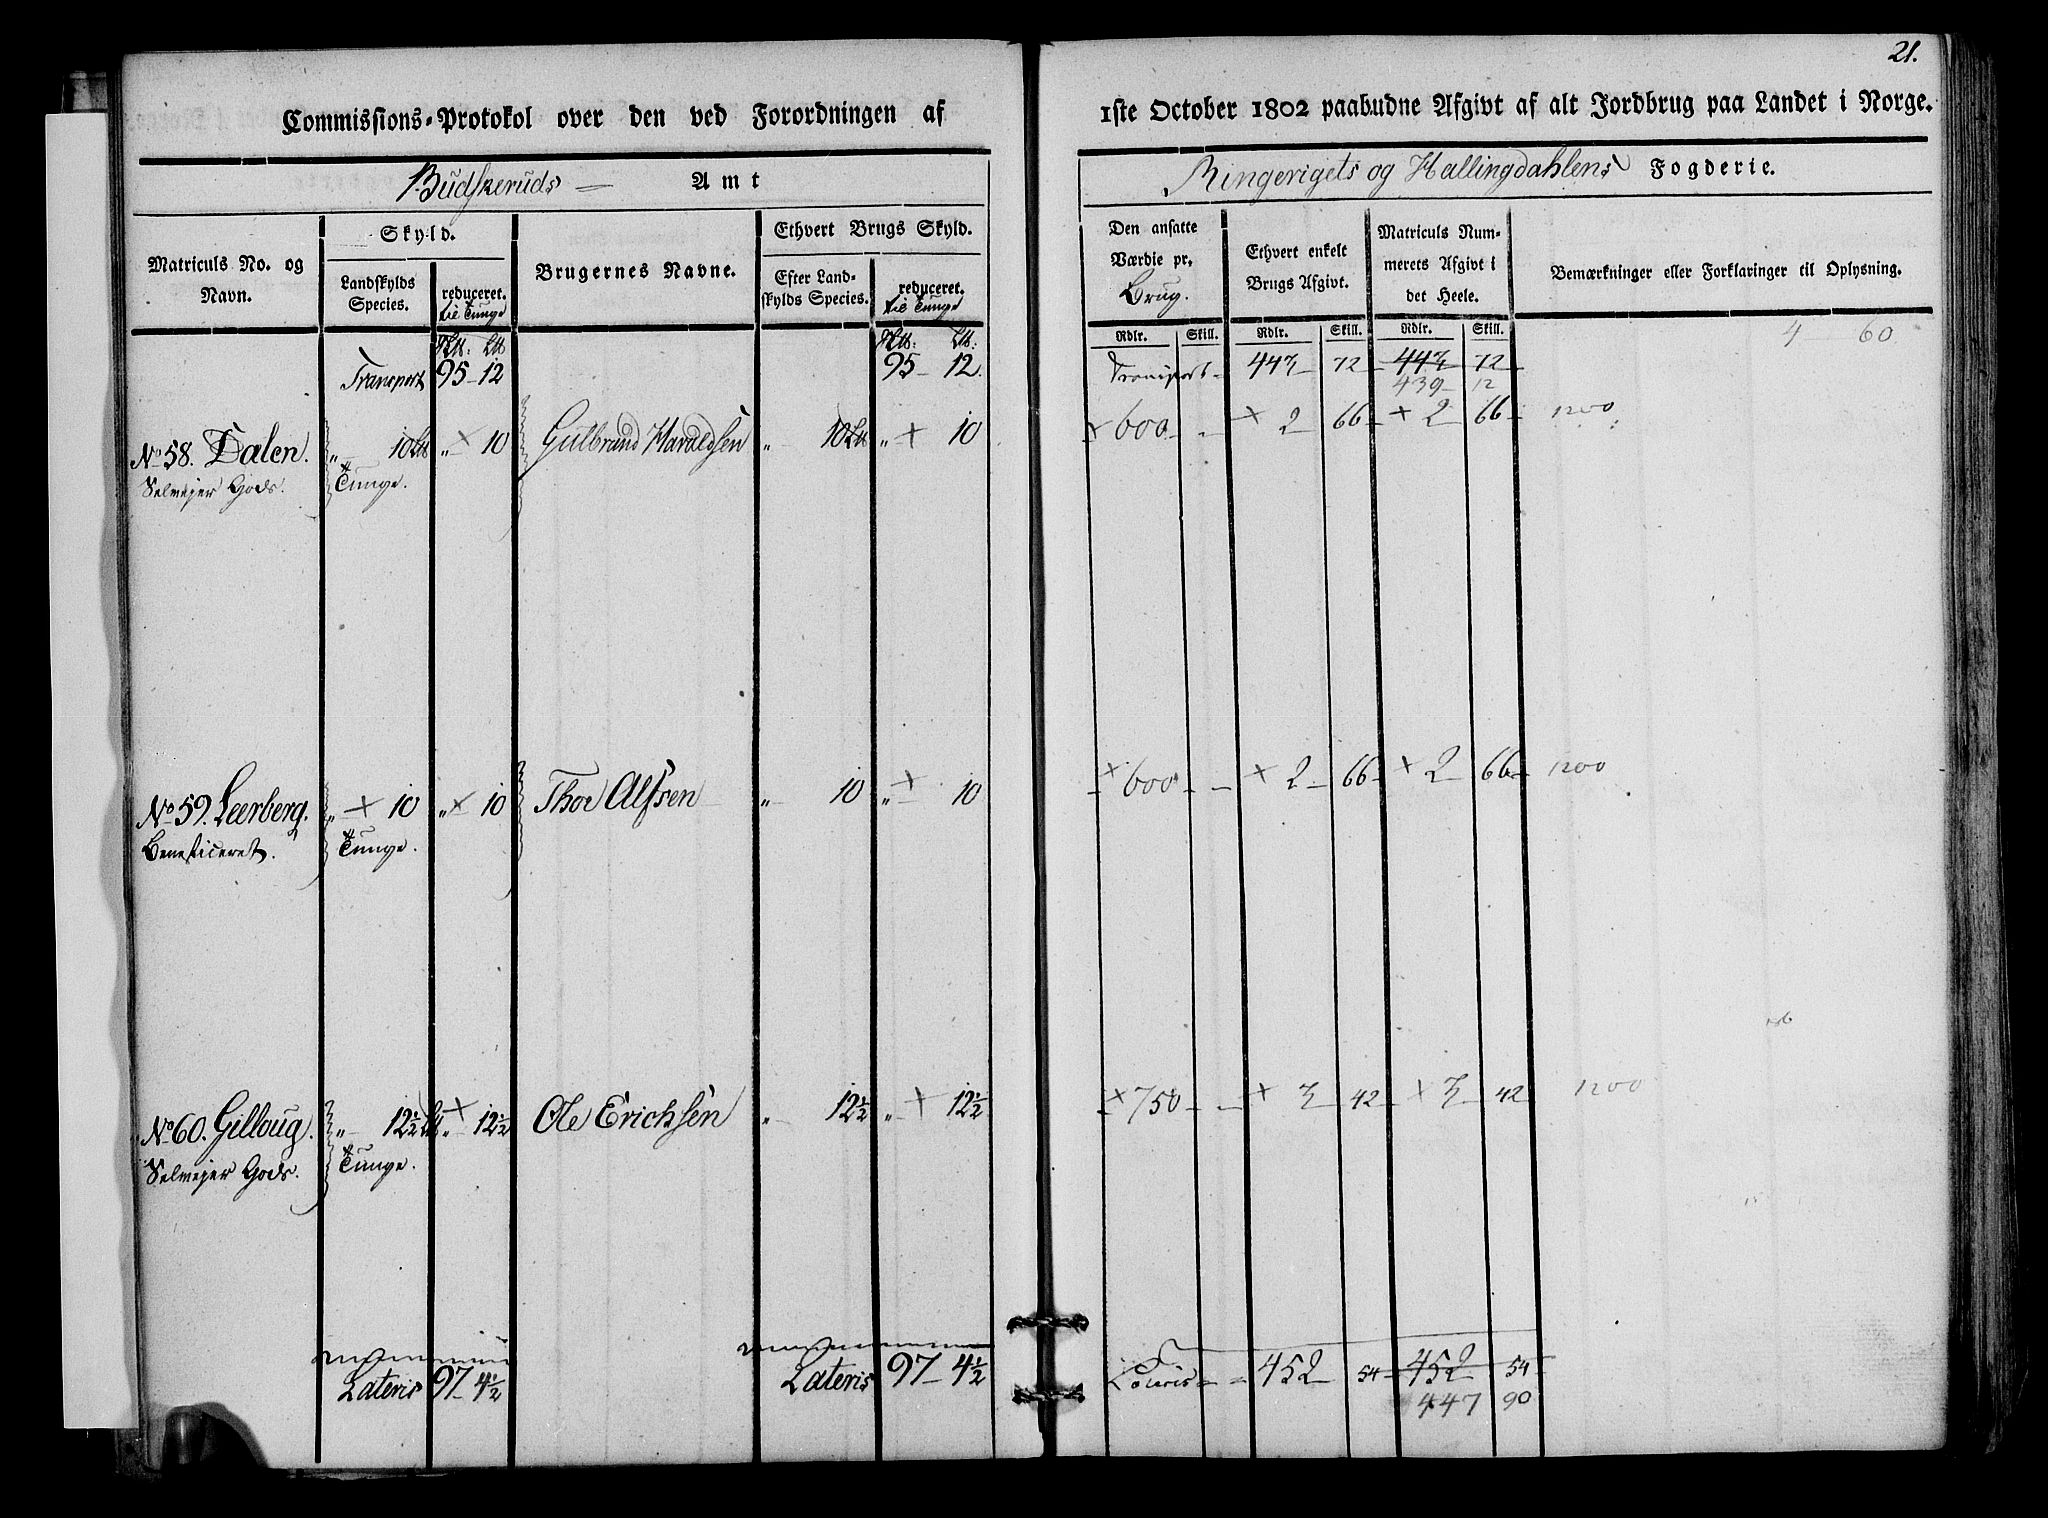 21.
Commissions-Protokol over den ved Forordningen af 1ste October 1802 paabudne Afgivt af alt Jordbrug paa Landet i Norge.
Budskeruds Amt Ringerigets og Hallingdahlens Fogderie.
Matriculs No. og Navn.
Skyld.
Landskylds Species.
reduceret. til Tunge
Brugernes Navne.
Ethvert Brugs Skyld.
Efter Landskylds Species.
reduceret. til Tunge
Den ansatte Værdie pr. Brug.
Ethvert enkelt Brugs Afgivt.
Matriculs Nummerets Afgivt i det Heele.
Bemærkninger eller Forklaringer til Oplysning.
Rdlr. Skill. Rdlr. Skill. Rdlr. Skill.
4 60
Transport 95 - 12 95 - 12. Transport - 443 - 72 - 443 - 72 -
439 - 12
No 58. Dalen. „ - 10 Lb „ - + 10 Gulbrand Haraldsen „ - 10 Lb „ - + 10 + 600 - - + 2 66 - + 2 66 - 1200
Selveyer Gods. Tunge.
No 59. Leerberg. „ + 10 „ + 10 Thor Alfsen „ - 10 „ + 10 + 600 - - + 2 - 66 - + 2 - 66 - 1200
Beneficeret. Tunge.
No 60. Gilloug. „ - 12½ Lb „ + 12½ Ole Erichsen „ - 12½ „ + 12½ + 750 - - + 3 - 42 - + 3 - 42 1200
Selveyer Gods. Tunge.
Lateris 97 - 4½ Lateris 97 - 4½ Lateris - - 452 - 54 - 452 - 54 -
447 90